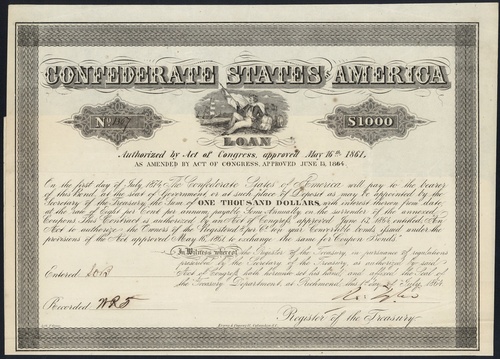 CONFEDERATE STATES AMERICA
No 107 $1000
LOAN
Authorized by Act of Congress, approved May 16th 1861,
AS AMENDED BY ACT OF CONGRESS, APPROVED JUNE 13, 1864.
On the first day of July, 1874, The Confederate States of America will pay to the bearer
of this Bond, at the seat of Government or at such place of Deposit as may be appointed by the
Secretary of the Treasury, the Sum of ONE THOUSAND DOLLARS, with interest thereon from date
at the rate of Eight per Cent per annum, payable Semi Annually, on the surrender of the annexed
Coupons. This Contract is authorized by an Act of Congress, approved June 13, 1864, entitled An
Act to authorize the Owners of the Registered 8 per Ct. ten year Convertible bonds issued under the
provisions of the Act approved May 16, 1861 to exchange the same for Coupon Bonds
In Witness whereof, the Register of the Treasury, in pursuance of regulations
prescribed by the Secretary of the Treasury, as authorized by said
Act of Congress, hath hereunto set his hand, and affixed the Seal of
the Treasury Department, at Richmond, this day of July 1864
Entered
Recorded
Register of the Treasury.